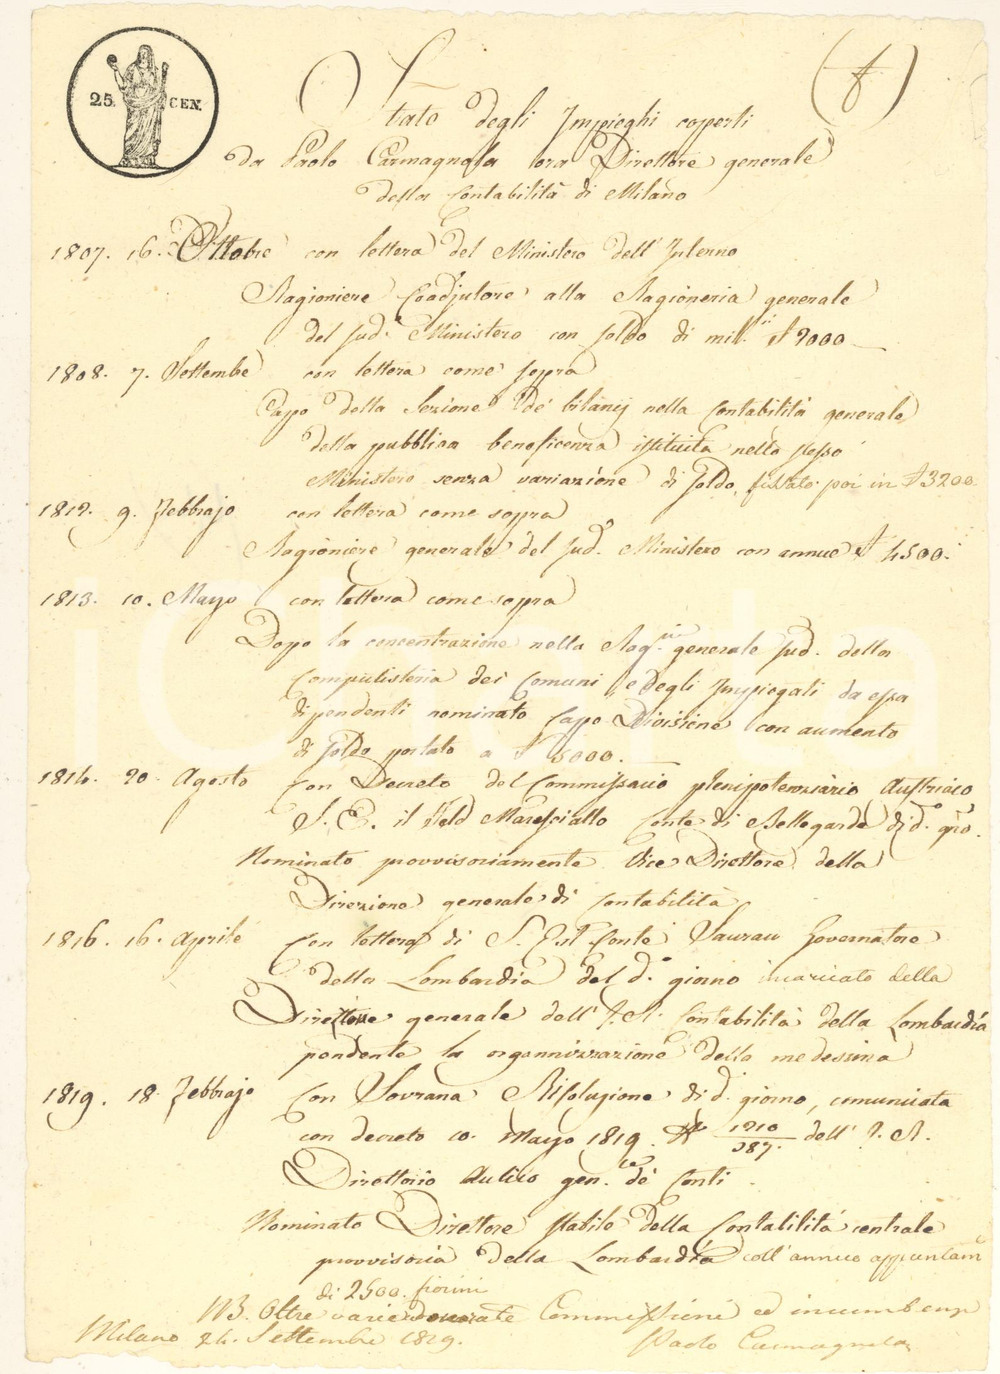 25. CEN.
Stato degli Impieghi coperti
da Paolo Carmagnola ora Direttore generale
della Contabilità di Milano
1807. 16. Ottobre con lettera del Ministero dell' Interno
Ragioniere Coadjutore alla Ragioneria generale
del sud.° Ministero con soldo di mil. 2000
1808. 7. Settembe con lettera come sopra
Capo della Sezione de' bilanij nella Contabilità generale
della pubblica beneficenza istituita nello stesso
Ministero senza variazione di soldo, fissato poi in 3200.
1812. 9. Febbrajo con lettera come sopra
Ragioniere generale del sud.° Ministero con annue 4500.
1813. 10. Maggio con lettera come sopra
Dopo la concentrazione nella Rag.ria generale sud. della
Compulisteria dei Comuni e degli Impiegati da essa
dipendenti nominato Capo Divisione con aumento
di soldo portato a 5000.
1814. 20. Agosto con Decreto del Commissario plenipotenziario Austriaco
S. E. il Feld Maresciallo Conte di Bellegarde di d.° g.no.
Nominato provvisoriamente Vice Direttore della
Direzione generale di Contabilità
1816. 16. Aprile con lettera di S. E. il Conte Saurau Governatore
della Lombardia del d.° giorno incaricato della
Direzione generale dell' I. R. Contabilità della Lombardia
pendente la organnizzazione della medesima
1819. 18. Febbrajo Con Sovrana Risoluzione di d.° giorno, comunicata
con decreto 10. Marzo 1819. N° 1210/287. dell' I. R.
Direttorio Aulico gen.le de' Conti.
Nominato Direttore stabile della Contabilità centrale
provvisoria della Lombardia coll'annuo appuntam
di 2500. fiorini
NB. Oltre varie Commissioni ed incumbenze
Milano 24. Settembre 1819. Paolo Carmagnola